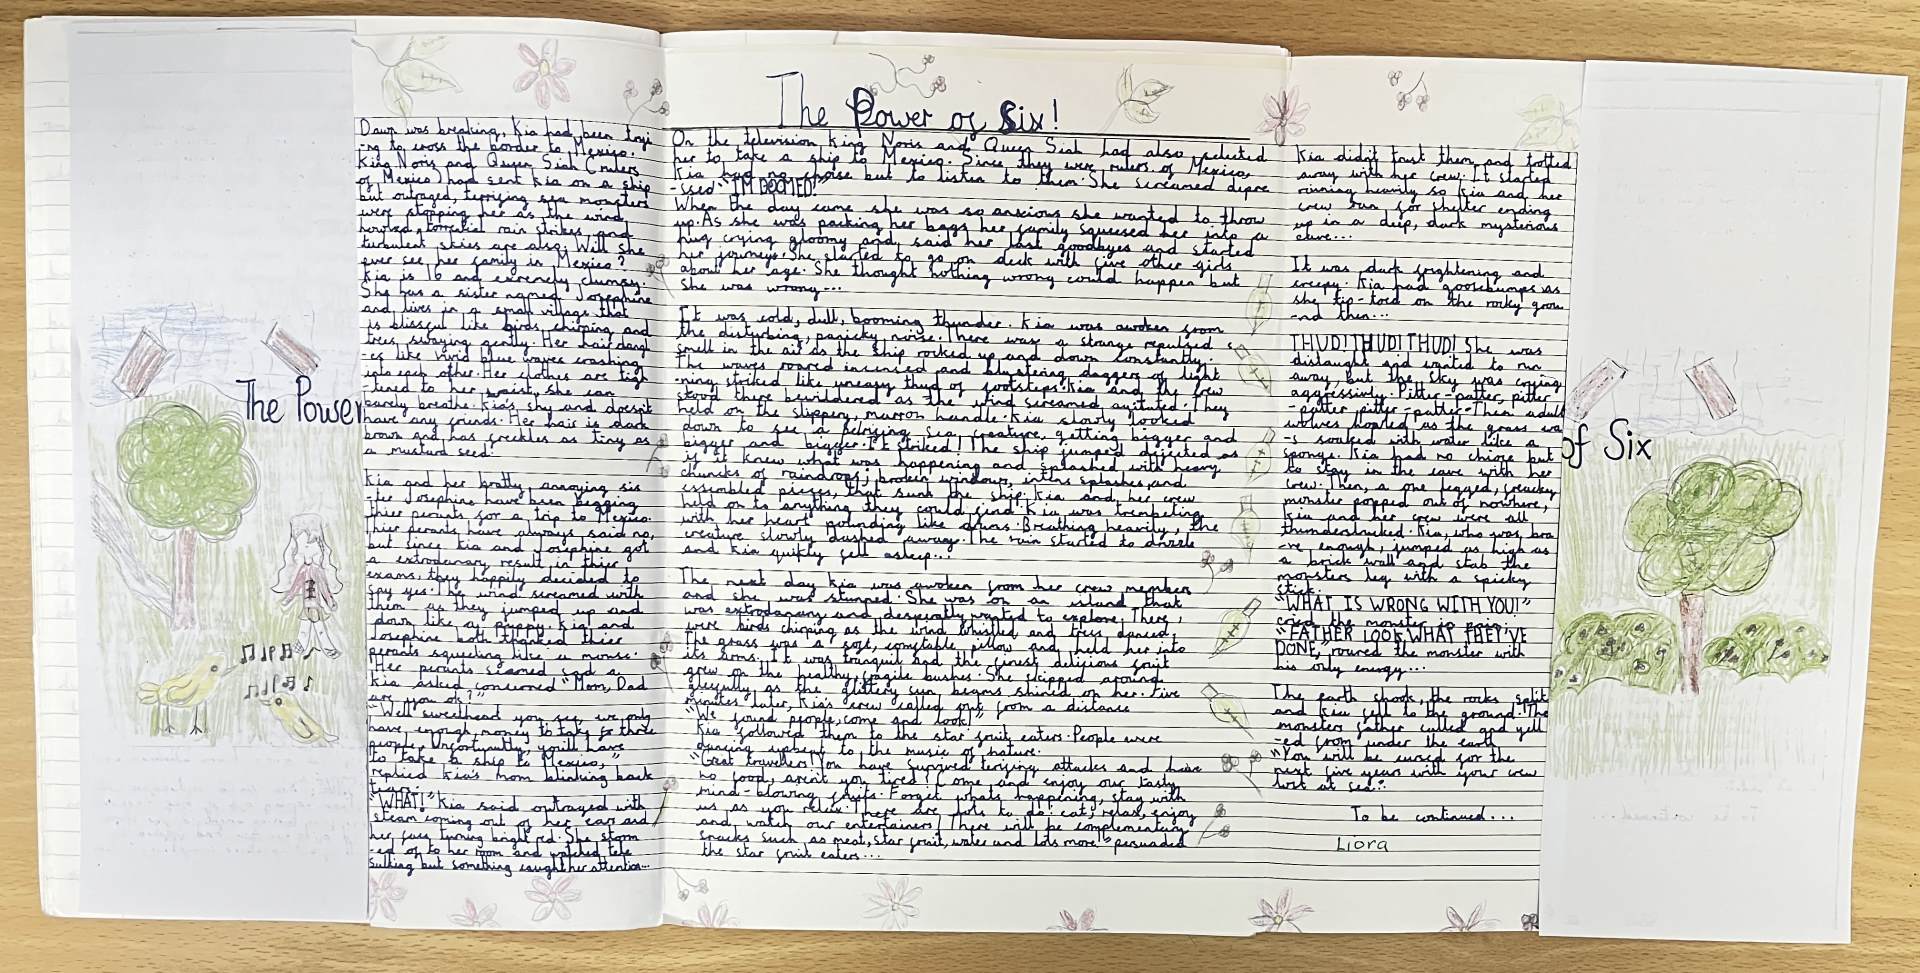 The Power of Six!
The Power
of Six
Dawn was breaking, Kia had been tryi
-ng to cross the border to Mexico.
King Noris and Queen Siah (rulers
of Mexico) had sent Kia on a ship
but outraged, terrifing sea monsters
were stopping her as the wind
howled, torrential rain strikes and
turbulent skies are also. Will she
ever see her family in Mexico?
Kia is 16 and extremely clumsy.
She has a sister named Josephine
and lives in a small village that
is blissful like birds chirping and
trees swaying gently. Her hair dangl
-es like vivid blue waves crashing
into each other. Her clothes are tigh
-tened to her waist, she can
barely breathe. Kia's shy and doesn't
have any friends. Her hair is dark
brown and has freckles as tiny as
a mustard seed.
Kia and her bratty, annoying sis
-ter Josephine have been begging
thier perants for a trip to Mexico.
Thier perants have always said no,
but since Kia and Josephine got
a extrodanary result in thier
exams, they happily decided to
say yes. The wind screamed with
them as they jumped up and
down like a puppy. Kia and
Josephine both thanked thier
perants squeeling like a mouse.
Her perants seamed sad
Kia asked concerned "Mom, Dad
are you ok?"
"Well sweetheart you see, we only
have enough money to take three
people. Unfortunatly, you'll have
to take a ship to Mexico,"
replied Kia's mom blinking back
tears.
"WHAT!" Kia said outraged with
steam coming out of her ears and
her face turning bright red. She storm
-ed of to her room and watched tele
sulking but something caught her attention...
On the television King Noris and Queen Siah had also selected
her to take a ship to Mexico. Since they were rulers of Mexico,
Kia had no choise but to listen to them. She screamed depre
-ssed "I'M DOOMED!"
When the day came she was so anxious she wanted to throw
up. As she was packing her bags her family squeesed her into a
hug crying gloomy and said her last goodbyes and started
her journeys. She started to go on deck with five other girls
about her age. She thought nothing wrong could happen but
she was wrong...
It was cold, dull, booming thunder. Kia was awoken from
the disturbing, panicky noise. There was a strange repulsed
smell in the air as the ship rocked up and down constantly.
The waves roared incensed and blustering daggers of light
-ning striked like uneasy thud of footsteps. Kia and the crew
stood there bewildered as the wind screamed agitated. They
held on the slippery, marron handle. Kia slowly looked
down to see a sea creature, getting bigger and
bigger and bigger. It striked! The ship jumped dejected as
if it knew what was happening and splashed with heavy
chunks of raindrops, broken windows, splashes, and
essembled pieces, that sunk the ship. Kia and her crew
held on to anything they could find. Kia was trempeting
with her heart pounding like drums. Breathing heavily, the
creature slowly dashed away. The rain started to drizzle
and Kia quikly fell asleep...
The next day Kia was awoken from her crew members
and she was stunned. She was on an island that
was extrodanary and despratly wanted to explore. There,
were birds chirping as the wind whistled and trees danced.
The grass was a soft, comftable pillow and held her into
its arms. It was tranquil and the finest delicious fruit
grew on the healthy, fragile bushes. She skipped around
gleefully as the glittery sun beams shined on her. Five
minutes later, Kia's crew called out from a distance
"We found people, come and look!"
Kia followed them to the star fruit eaters. People were
dancing upbeat to the music of nature.
"Great travellers! You have survived terifying attacks and have
no food, aren't you tired? Come and enjoy our tasty,
mind-blowing fruits. Forget whats happening, stay with
us as you relax. There are lots to do: eat, relax, enjoy
and watch our entertainers. There will be complementary
snacks such as meat, star fruit, water and lots more!" persuaded
the star fruit eaters...
Kia didn't trust them and trotted
away with her crew. It started
rainning heavily so Kia and her
crew run for shelter ending
up in a deep, dark mysterious
cave...
It was dark frightening and
creepy. Kia had goosebumps as
she tip-toed on the rocky grou
-nd then...
THUD! THUD! THUD! She was
distaught and wanted to run
away, but the sky was crying
aggressively. Pitter-patter, pitter
-patter pitter-patter. Then adult
wolves howled as the grass wa
-s soaked with water like a
sponge. Kia had no chiose but
to stay in the cave with her
crew. Then, a one legged, creacky
monster popped out of nowhere,
Kia and her crew were all
thunderstrucked. Kia, who was bra
-ve enough, jumped as high as
a brick wall and stab the
monsters leg with a spicky
stick.
"WHAT IS WRONG WITH YOU!"
cried the monster in pain.
"FATHER LOOK WHAT THEY'VE
DONE, roured the monster with
his only energy...
The earth shook, the rocks split
and Kia fell to the ground. The
monsters father culled and yell
-ed from under the earth
"You will be cursed for the
next five years with your crew
lost at sea."
To be continued...
Liora